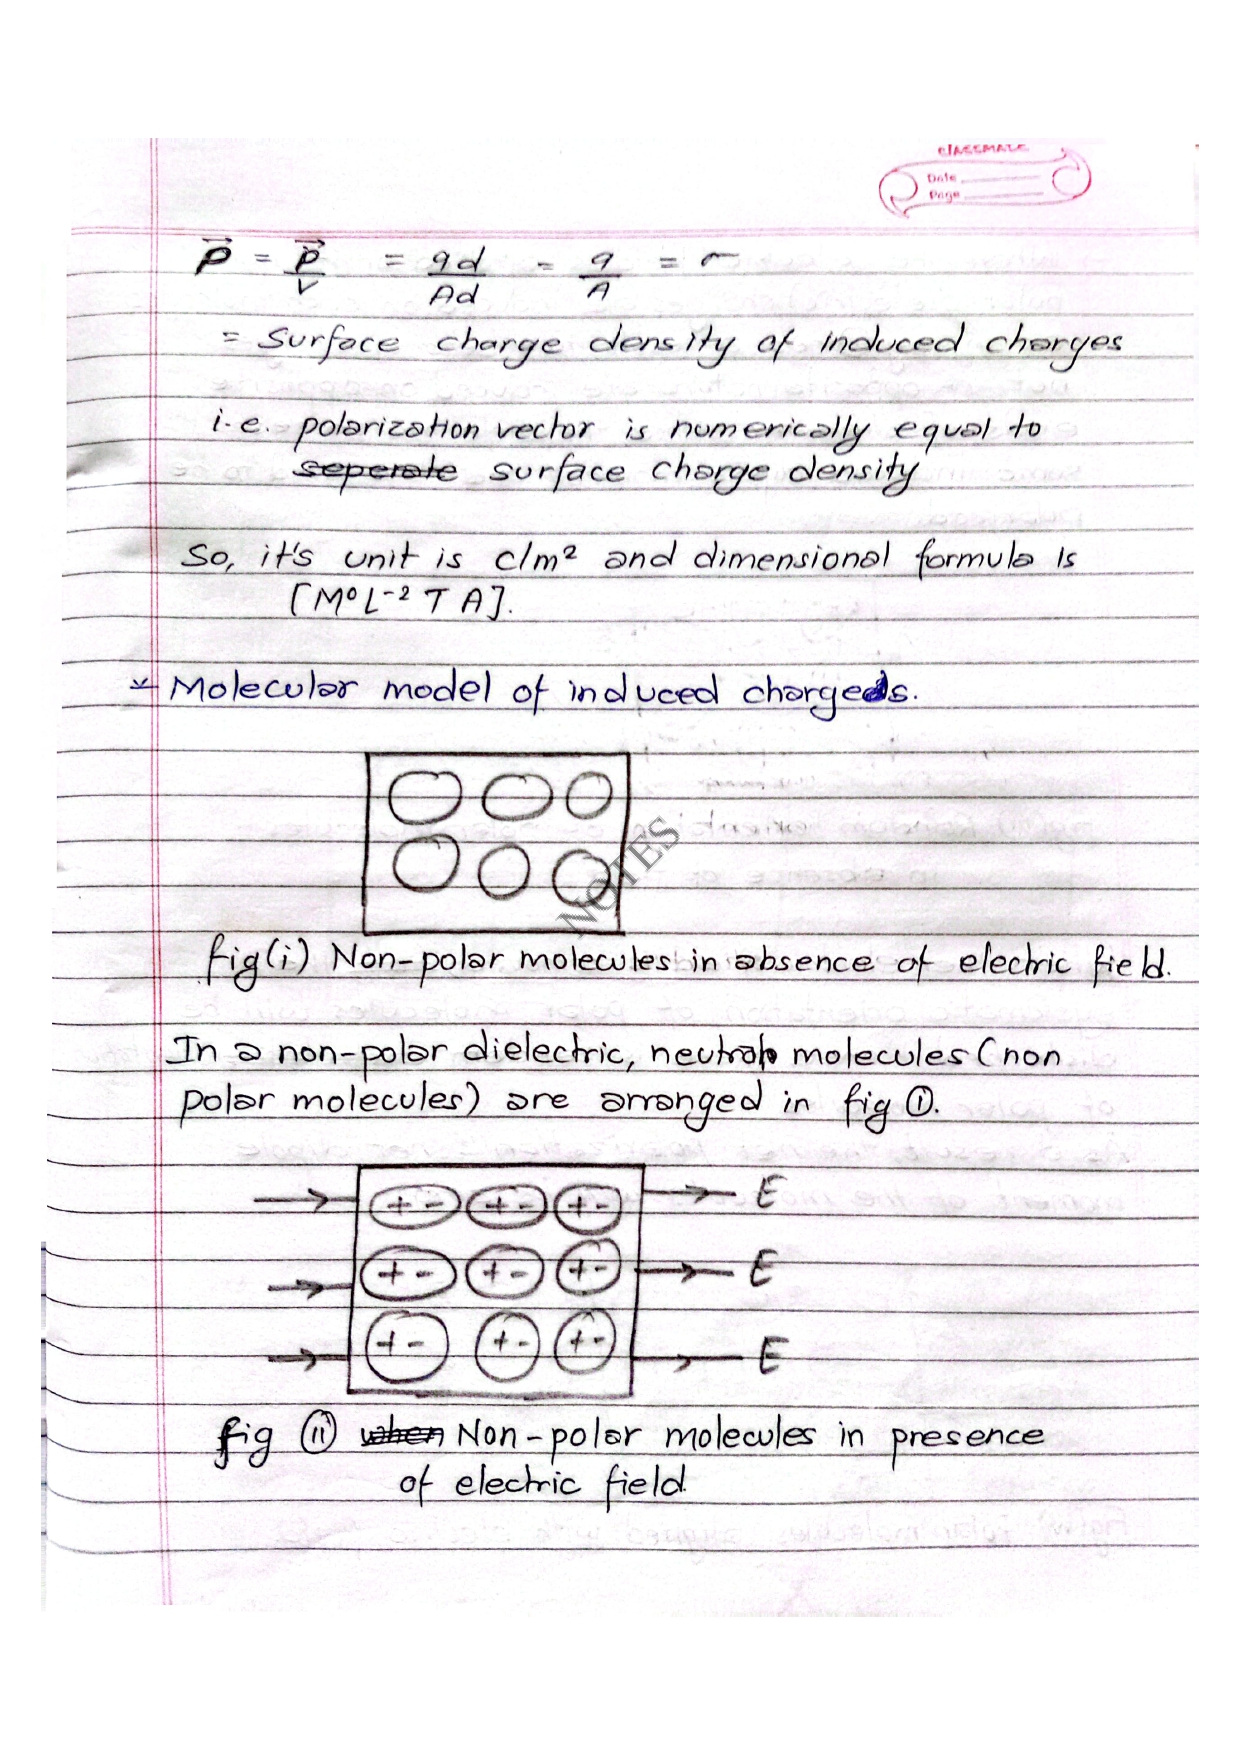 classmate
Date
Page
P⃗ = p⃗/V = qd/Ad = q/A = σ
= Surface charge density of induced charges
i.e. polarization vector is numerically equal to
seperate surface charge density
So, it's unit is c/m² and dimensional formula is
[M⁰L⁻² T A].
* Molecular model of induced charges.
NOTES
fig(i) Non-polar molecules in absence of electric field.
In a non-polar dielectric, neutral molecules (non
polar molecules) are arranged in fig ①.
+ - + - + - E
+ - + - + - E
+ - + - + - E
fig ⑪ when Non-polar molecules in presence
of electric field